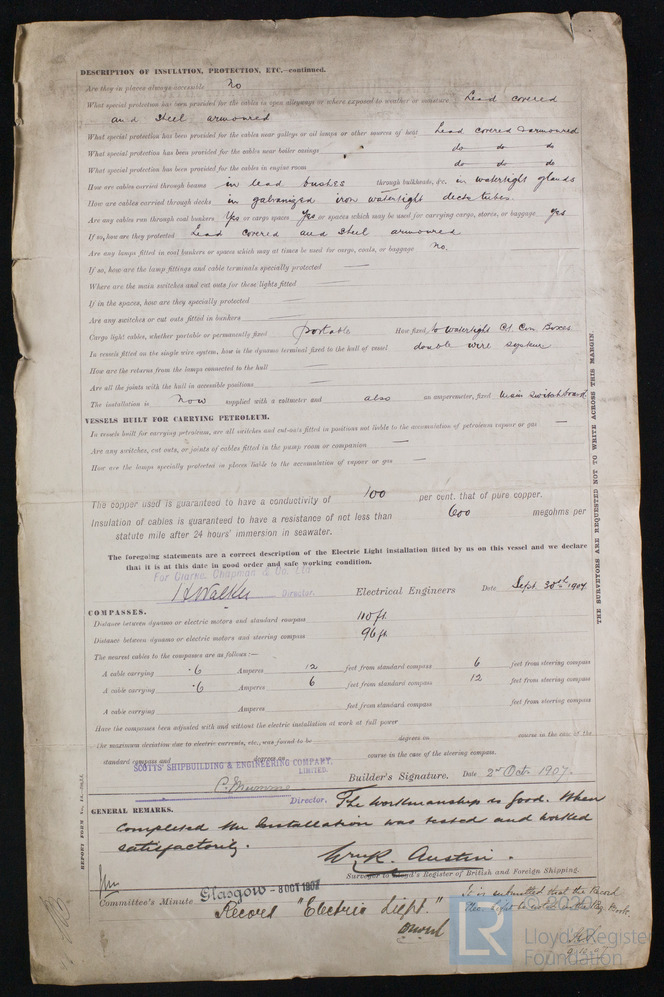 DESCRIPTION OF INSULATION, PROTECTION, ETC.—continued.
Are they in places always accessible No
What special protection has been provided for the cables in open alleyways or where exposed to weather or moisture Lead covered
and steel armoured
What special protection has been provided for the cables near galleys or oil lamps or other sources of heat Lead covered & armoured
What special protection has been provided for the cables near boiler casings do do do
What special protection has been provided for the cables in engine room do do do
How are cables carried through beams in lead bushes through bulkheads, &c. in watertight glands
How are cables carried through decks in galvanized iron watertight decks tubes.
Are any cables run through coal bunkers Yes or cargo spaces Yes or spaces which may be used for carrying cargo, stores, or baggage yes
If so, how are they protected Lead covered and steel armoured
Are any lamps fitted in coal bunkers or spaces which may at times be used for cargo, coals, or baggage no
If so, how are the lamp fittings and cable terminals specially protected —
Where are the main switches and cut outs for these lights fitted —
If in the spaces, how are they specially protected —
Are any switches or cut outs fitted in bunkers —
Cargo light cables, whether portable or permanently fixed portable How fixed to watertight C.I. Con Boxes
In vessels fitted on the single wire system, how is the dynamo terminal fixed to the hull of vessel double wire system
How are the returns from the lamps connected to the hull —
Are all the joints with the hull in accessible positions —
The installation is now supplied with a voltmeter and also an amperemeter, fixed Main Switchboard
VESSELS BUILT FOR CARRYING PETROLEUM.
In vessels built for carrying petroleum, are all switches and cut-outs fitted in positions not liable to the accumulation of petroleum vapour or gas —
Are any switches, cut outs, or joints of cables fitted in the pump room or companion —
How are the lamps specially protected in places liable to the accumulation of vapour or gas —
The copper used is guaranteed to have a conductivity of 100 per cent. that of pure copper.
Insulation of cables is guaranteed to have a resistance of not less than 600 megohms per
statute mile after 24 hours' immersion in seawater.
The foregoing statements are a correct description of the Electric Light installation fitted by us on this vessel and we declare
that it is at this date in good order and safe working condition.
For Clarke, Chapman & Co. Ltd
H Walker Director. Electrical Engineers Date Sept. 30th 1907
COMPASSES.
Distance between dynamo or electric motors and standard compass 110 ft
Distance between dynamo or electric motors and steering compass 96 ft
The nearest cables to the compasses are as follows:—
A cable carrying .6 Amperes 12 feet from standard compass 6 feet from steering compass
A cable carrying .6 Amperes 6 feet from standard compass 12 feet from steering compass
A cable carrying Amperes feet from standard compass feet from steering compass
Have the compasses been adjusted with and without the electric installation at work at full power
The maximum deviation due to electric currents, etc., was found to be degrees on course in the case of the
standard compass and degrees on course in the case of the steering compass.
SCOTTS' SHIPBUILDING & ENGINEERING COMPANY,
LIMITED.
Builder's Signature. Date 2nd Oct. 1907.
Director.
GENERAL REMARKS.
The workmanship is good. When
completed the Installation was tested and worked
satisfactorily.
Wm R. Austin.
Surveyor to Lloyd's Register of British and Foreign Shipping.
Committee's Minute Glasgow - 8 OCT 1907
Record "Electric Light."
It is submitted that the Record
Elec. Light be noted in the Reg. Book.
THE SURVEYORS ARE REQUESTED NOT TO WRITE ACROSS THIS MARGIN.
© 2020
LR
Lloyd's Register
Foundation